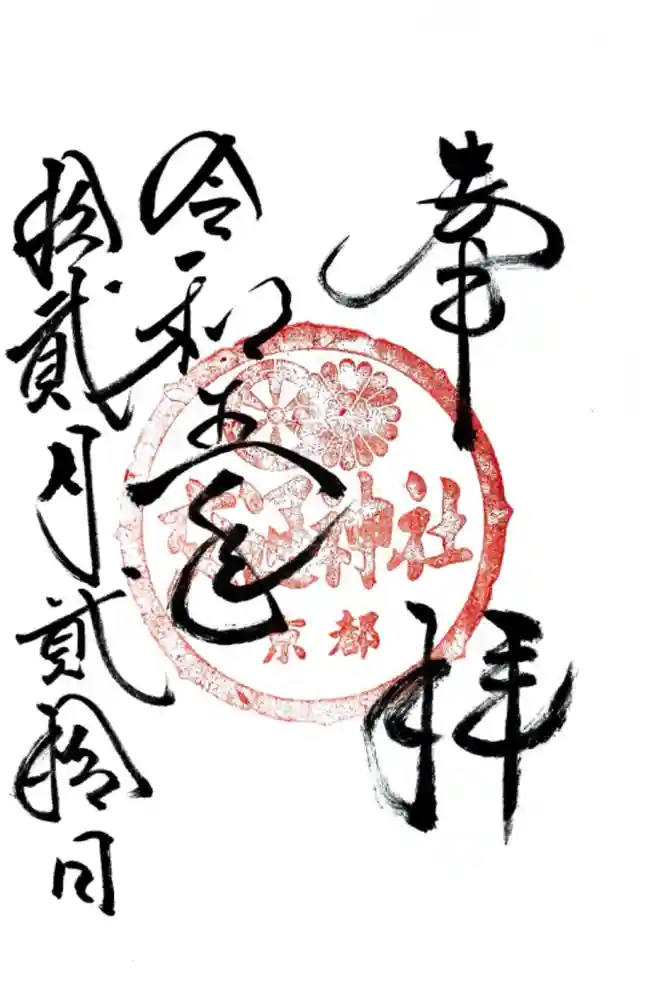 奉拝
神社
京都
令和五年
拾貳月貳拾日